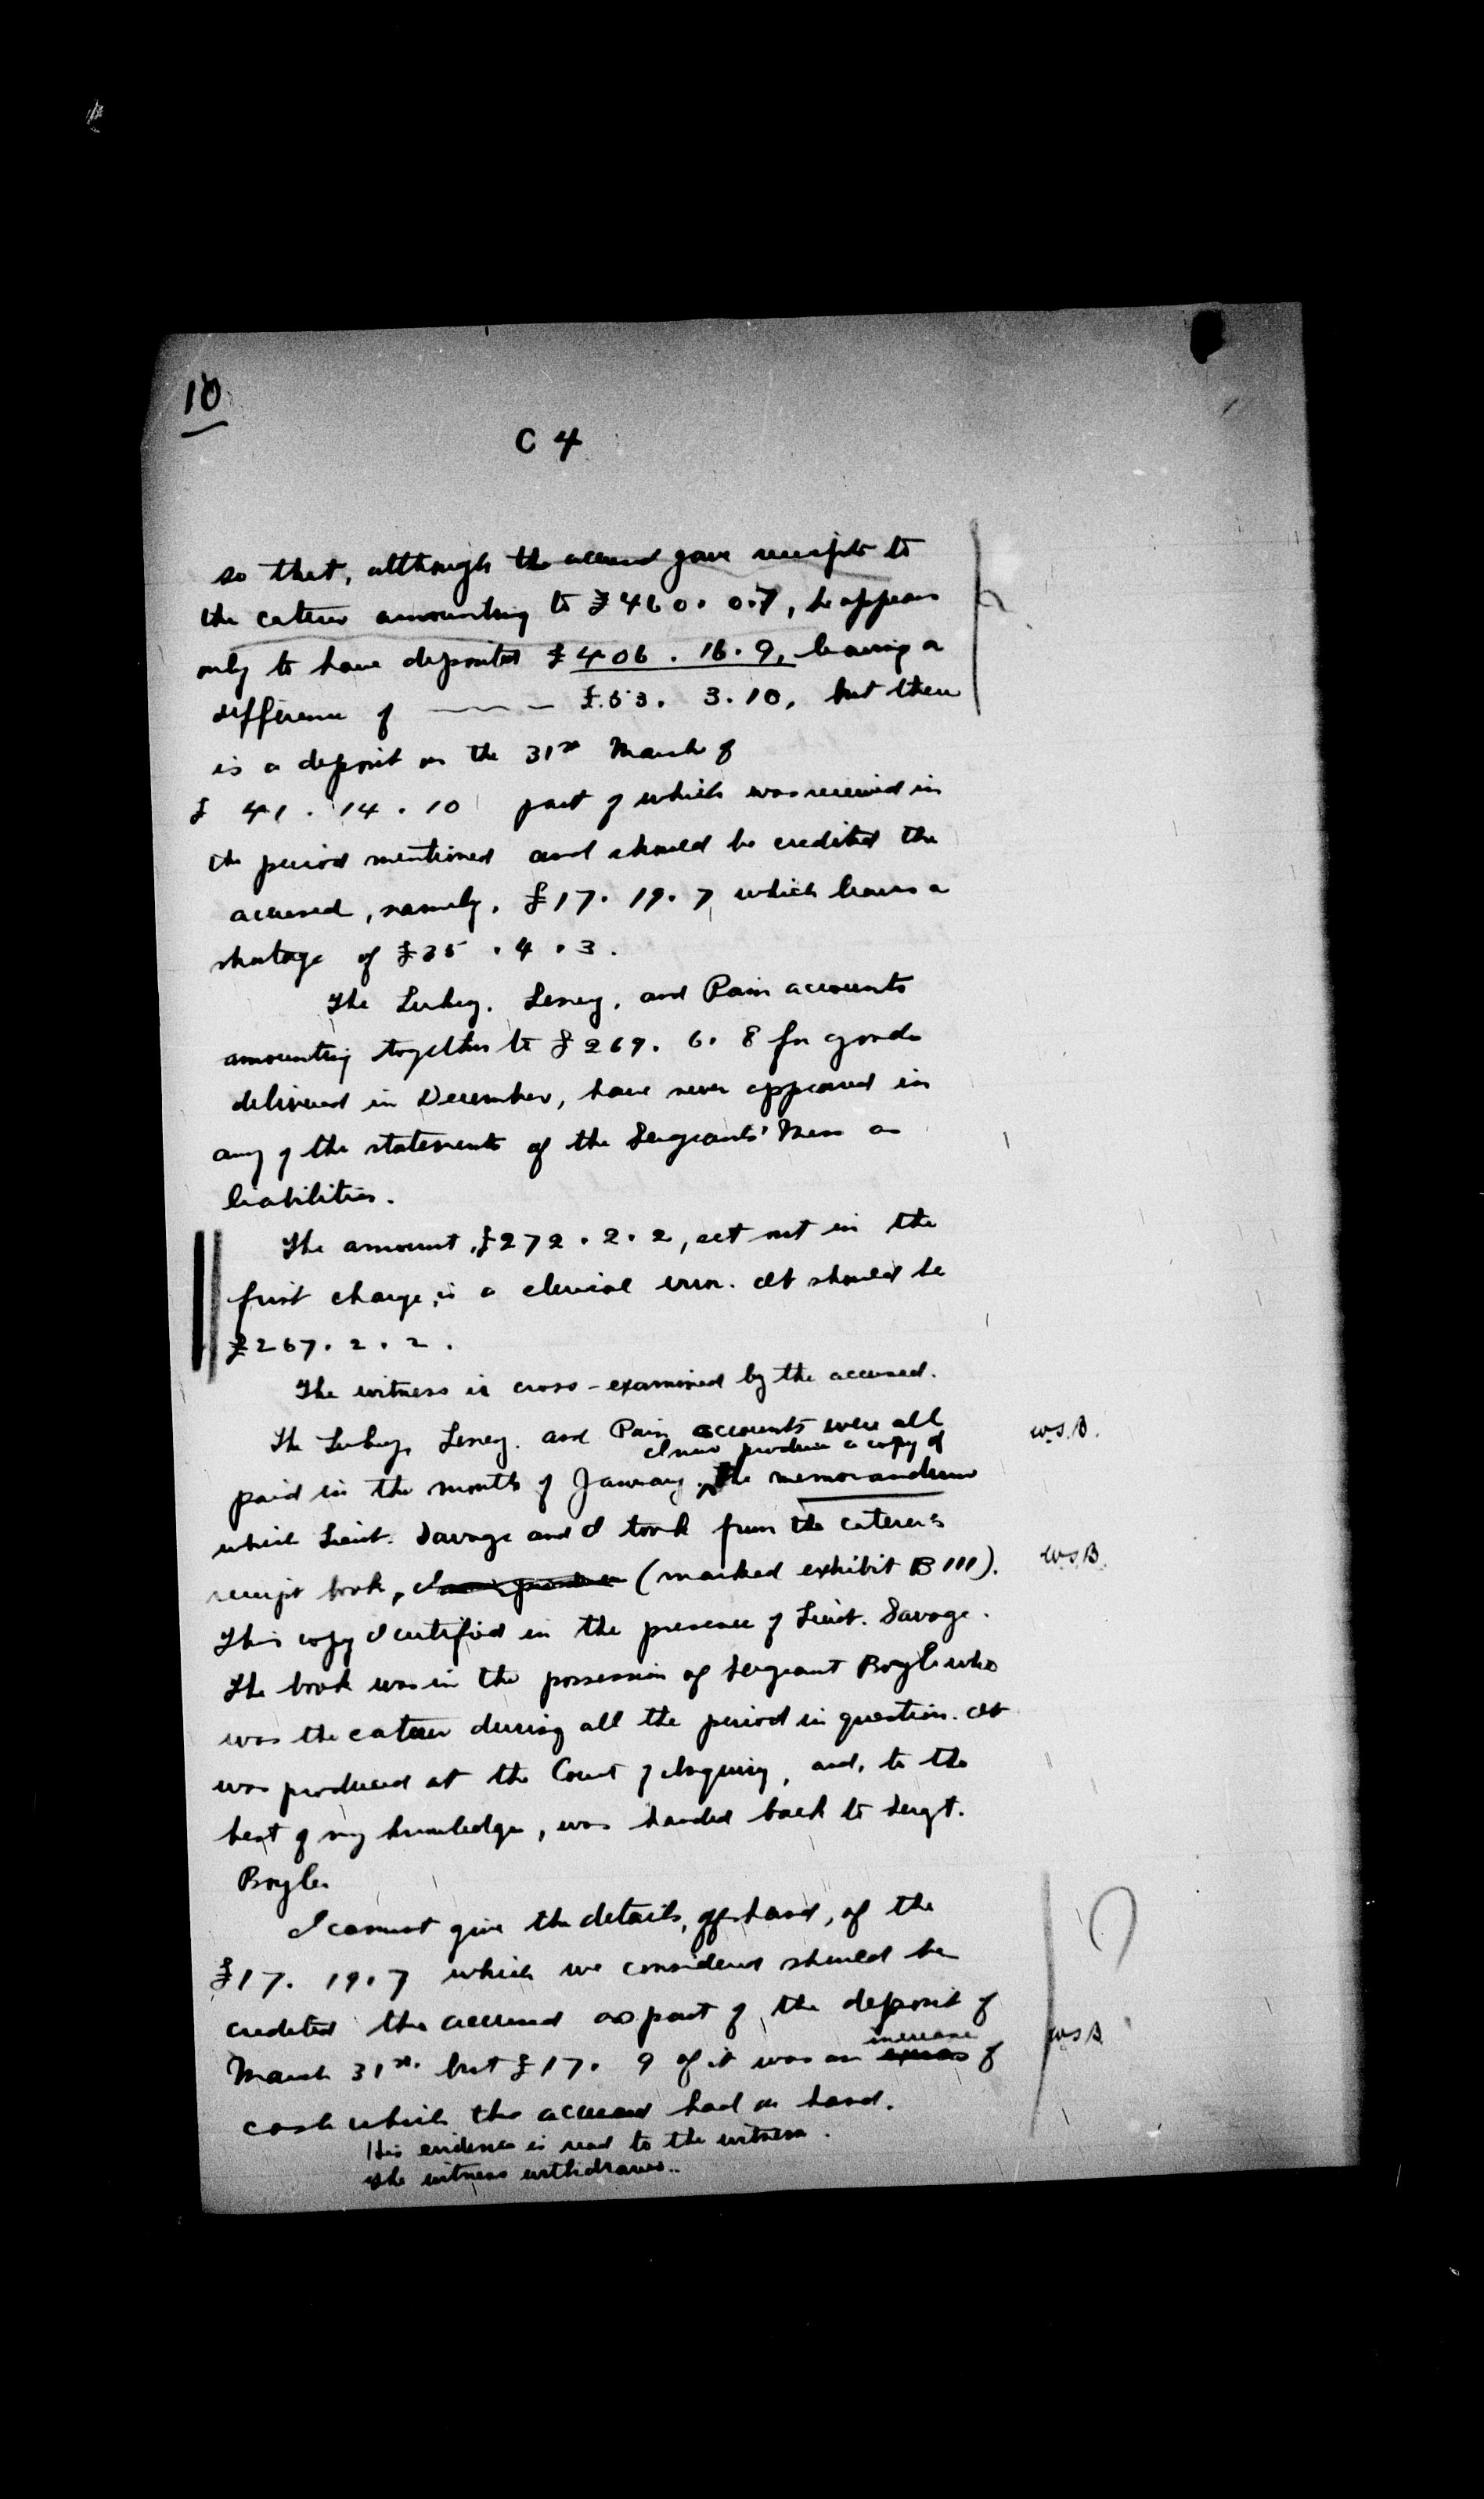 10
C 4
so that, although the accused gave receipts to
the caterer amounting to £460. 0.7, he appears
only to have deposited £406. 16. 9, leaving a
difference of — — £53. 3. 10, but there
is a deposit on the 31st March of
£ 41. 14. 10 part of which was received in
the period mentioned and should be credited the
accused, namely, £17. 19. 7, which leaves a
shortage of £35. 4. 3.
The Leney, and Pain accounts
amounting together to £269. 6. 8 for goods
delivered in December, have never appeared in
any of the statements of the Sergeants' Mess as
liabilities.
The amount, £272. 2. 2, set out in the
first charge, is a clerical error. It should be
£267. 2. 2.
The witness is cross-examined by the accused.
The Leney. and Pain accounts were all W.S.B.
I now produce a copy of
paid in the month of January. the memorandum
which Lieut. Savage and I took from the caterer's
receipt book, (marked exhibit B III). W.S.B.
This copy I certified in the presence of Lieut. Savage.
The book was in the possession of Sergeant Boyle who
was the caterer during all the period in question. It
was produced at the Court of Inquiry, and, to the
best of my knowledge, was handed back to Sergt.
Boyle.
I cannot give the details, off-hand, of the
£17. 19. 7 which we considered should be ?
credited the accused as part of the deposit of
increase
March 31st. but £17. 9 of it was an excess of W.S.B.
cash which the accused had on hand.
His evidence is read to the witness.
The witness withdraws.